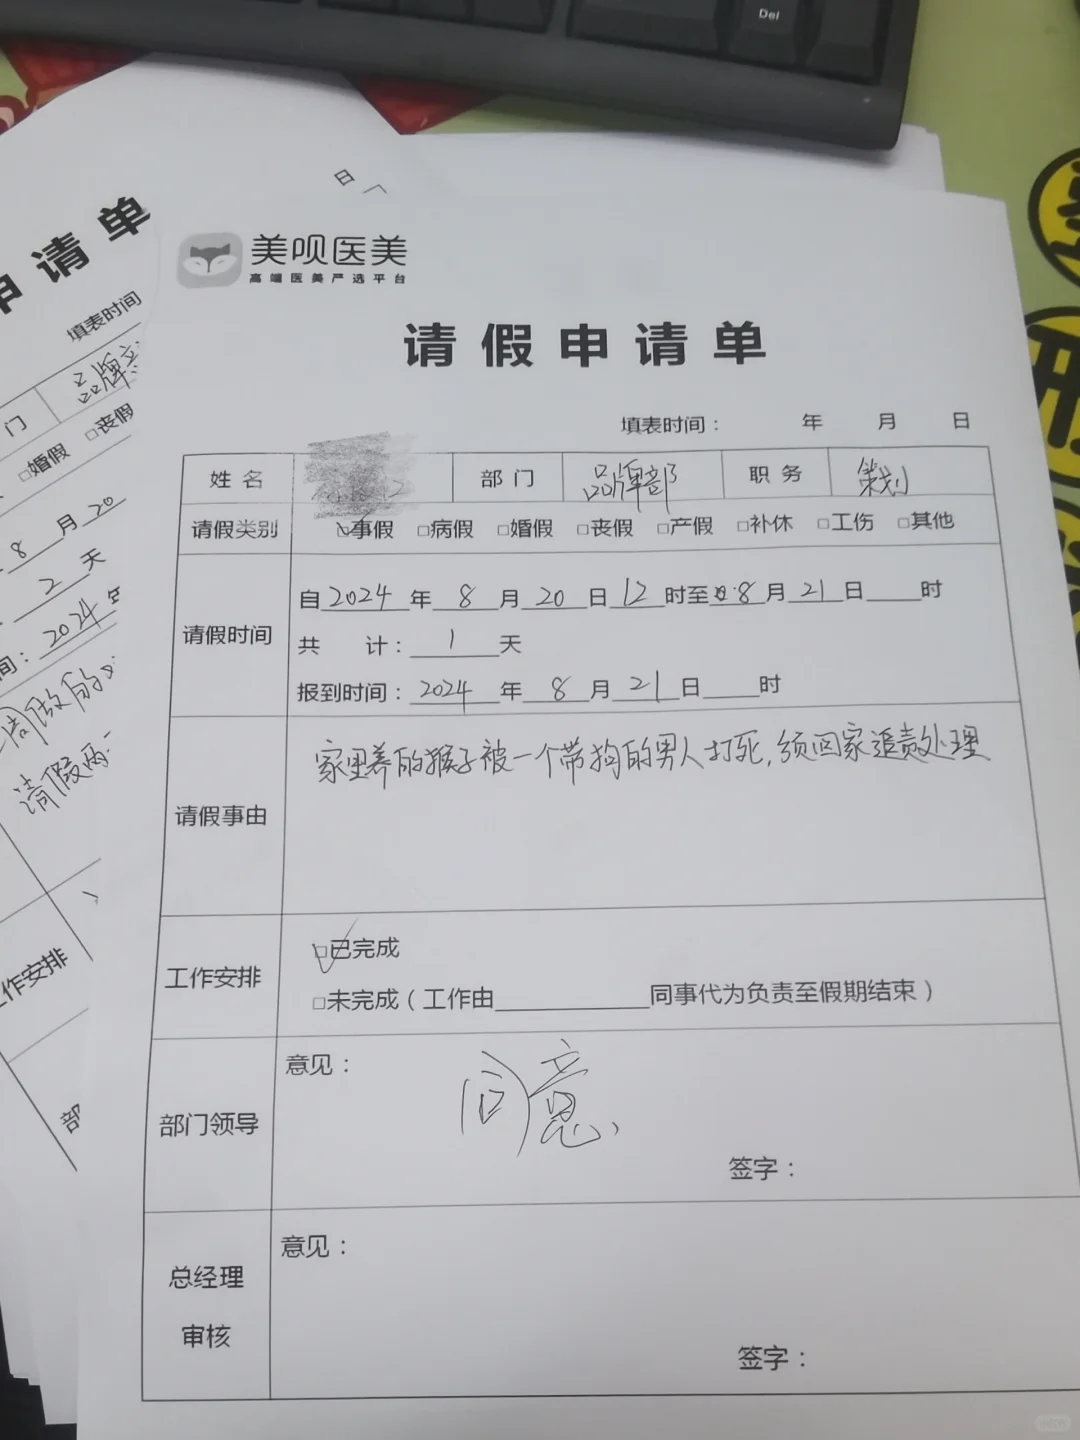 Del
日
申请单
填表时间
门
品牌
□婚假 □丧假
8月20
2天
间：2024年
周做的
请假两
工作安排
部
美呗医美
高端医美严选平台
请假申请单
填表时间： 年 月 日
姓名 部门 品牌部 职务 策划
请假类别 ☑事假 □病假 □婚假 □丧假 □产假 □补休 □工伤 □其他
请假时间
自2024年8月20日12时至8月21日____时
共 计：1天
报到时间：2024年8月21日____时
请假事由
家里养的猴子被一个带狗的男人打死,须回家追责处理
工作安排
☑已完成
□未完成（工作由____________同事代为负责至假期结束）
部门领导
意见：
同意、
签字：
总经理
审核
意见：
签字：